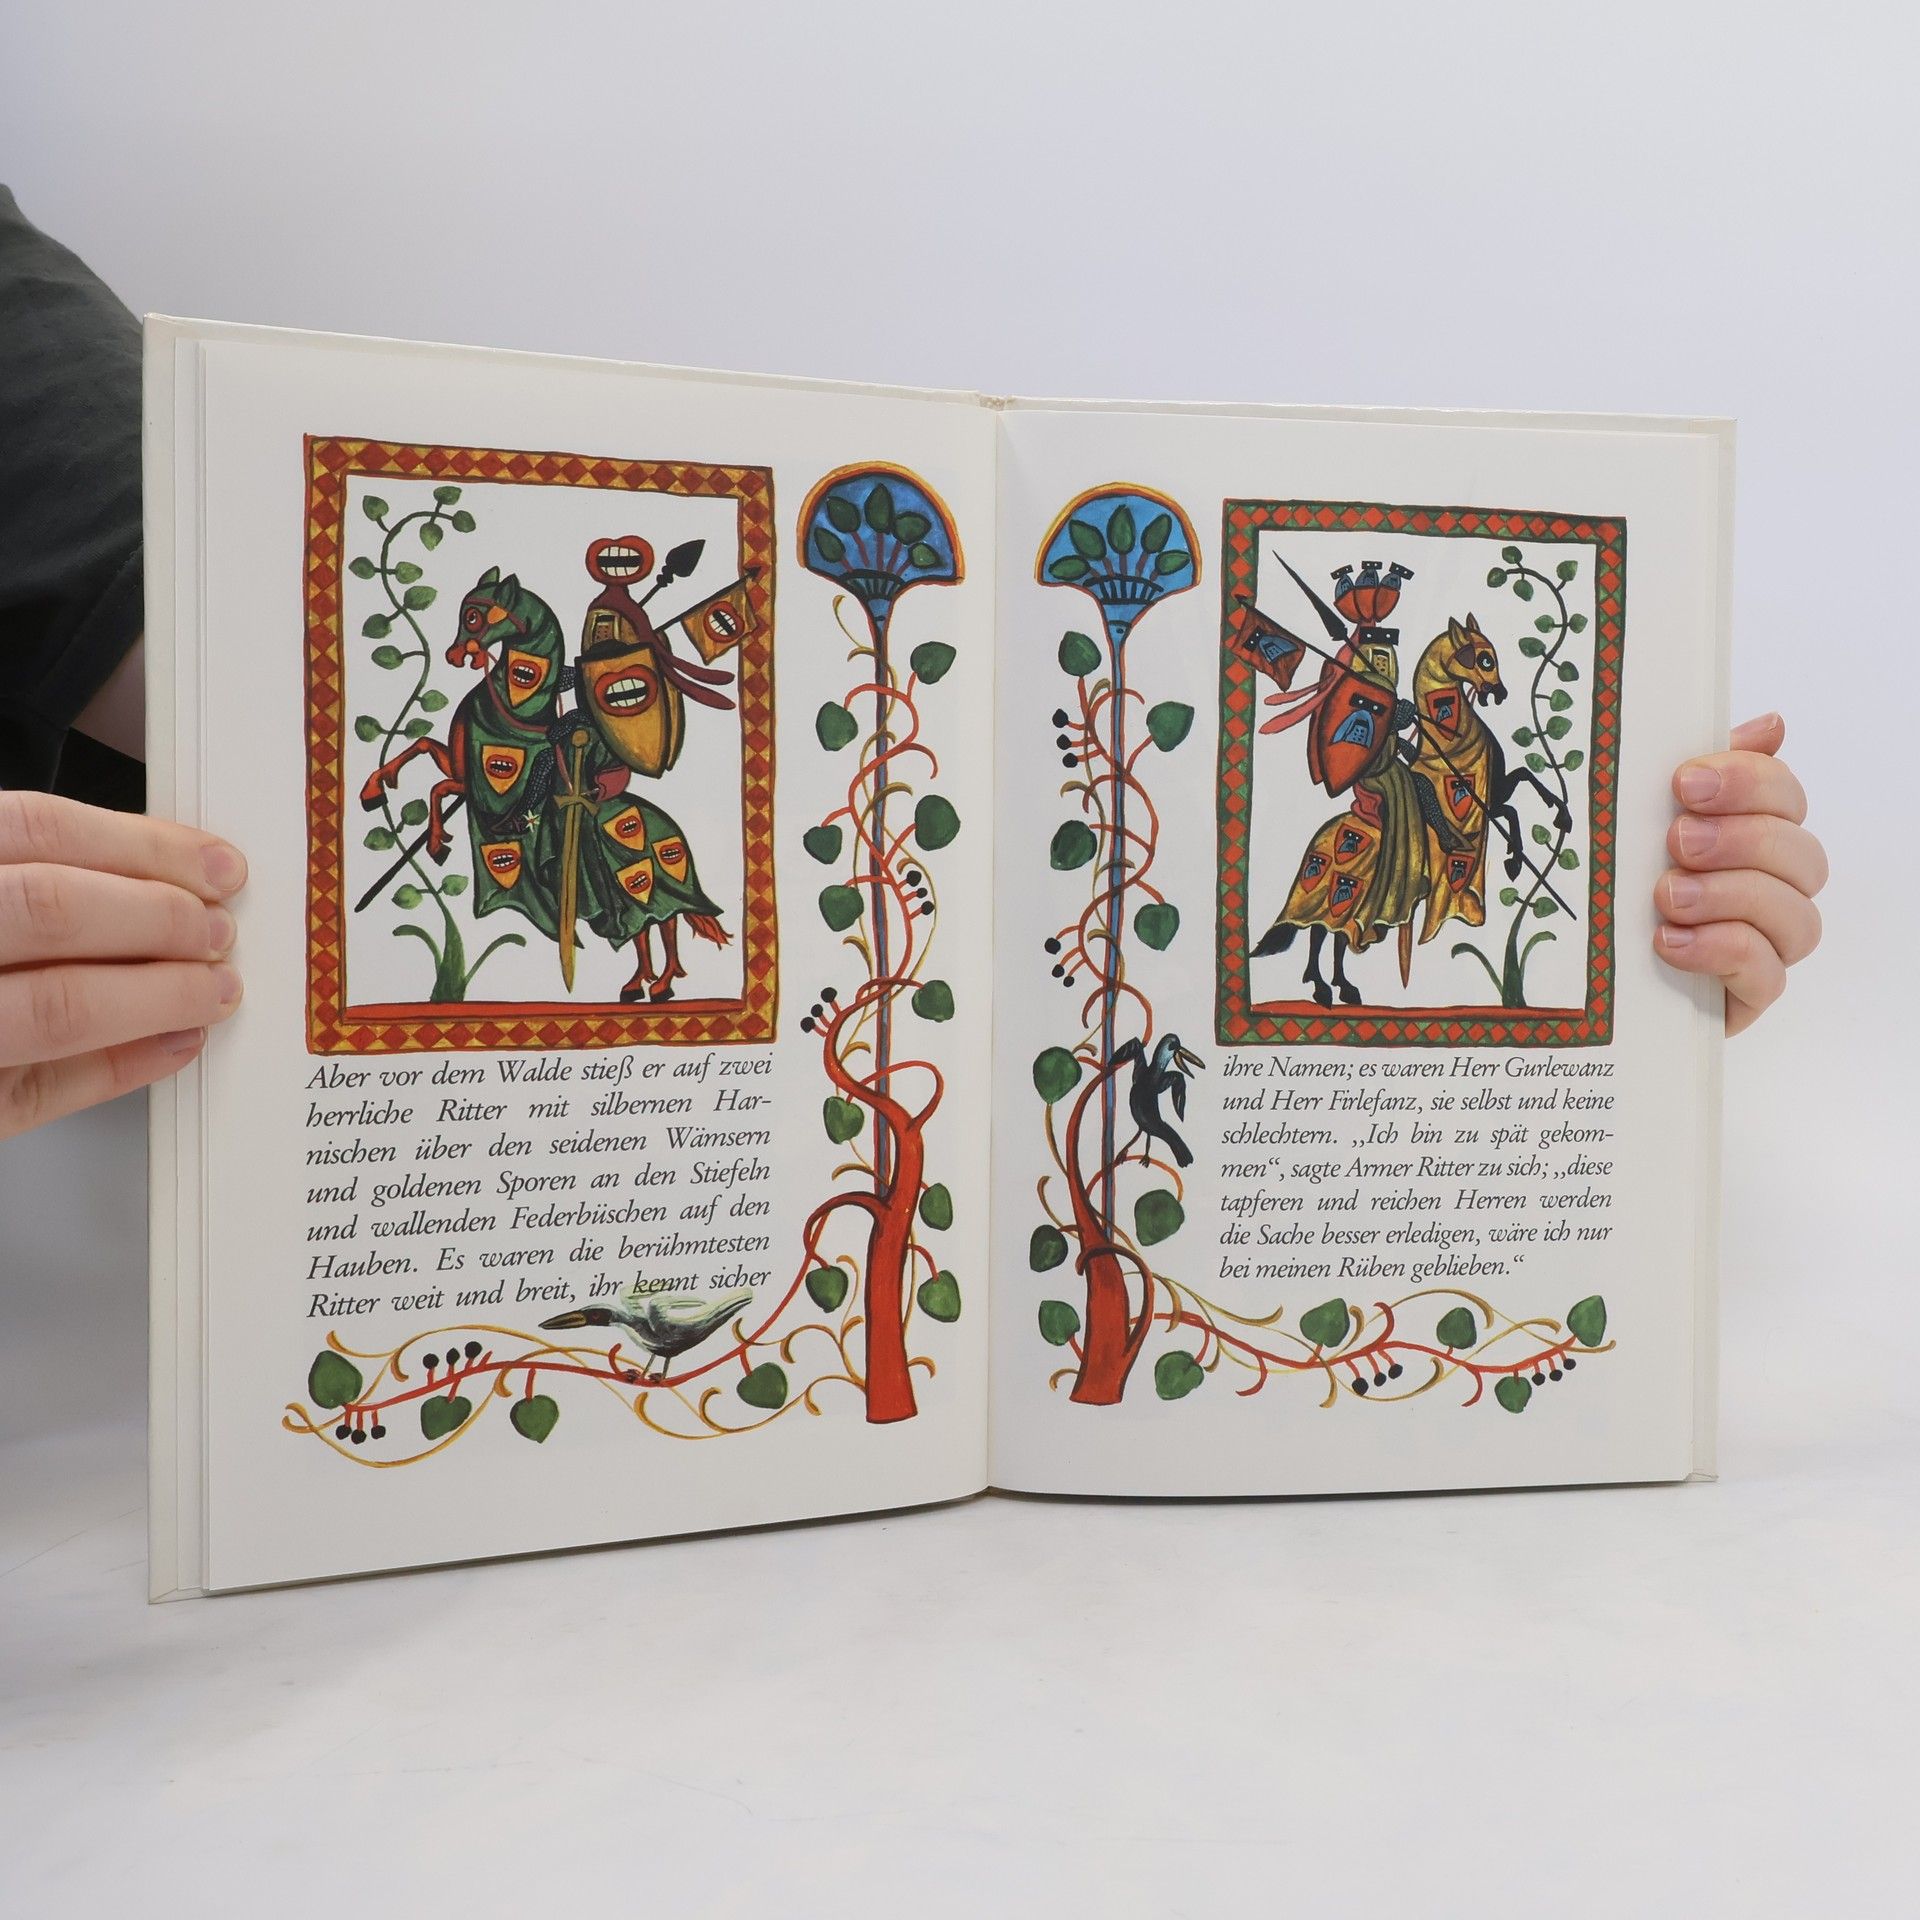 Aber vor dem Walde stieß er auf zwei
herrliche Ritter mit silbernen Har-
nischen über den seidenen Wämsern
und goldenen Sporen an den Stiefeln
und wallenden Federbüschen auf den
Hauben. Es waren die berühmtesten
Ritter weit und breit, ihr kennt sicher
ihre Namen; es waren Herr Gurlewanz
und Herr Firlefanz, sie selbst und keine
schlechtern. „Ich bin zu spät gekom-
men“, sagte Armer Ritter zu sich; „diese
tapferen und reichen Herren werden
die Sache besser erledigen, wäre ich nur
bei meinen Rüben geblieben.“